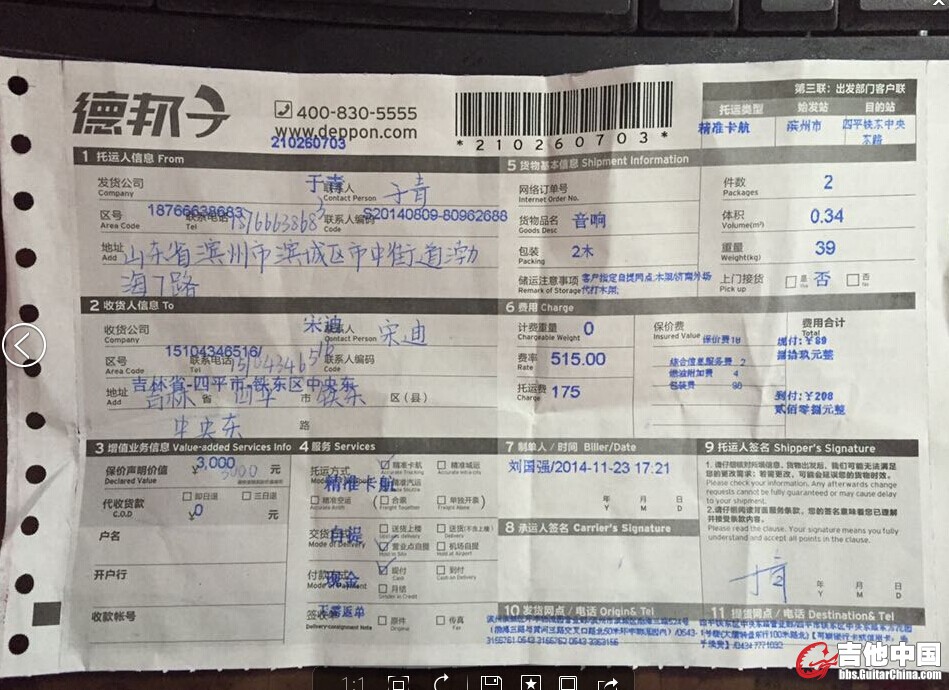 德邦
400-830-5555
www.deppon.com
210260703
*210260703*
第三联：出发部门客户联
托运类型 始发站 目的站
精准卡航 滨州市 四平铁东中央东路
1 托运人信息 From
发货公司 Company
于青 联系人 Contact Person 于青
区号 Area Code 18766638683 联系电话 Tel 18766638683 联系人编码 S20140809-80962688
地址 Add 山东省滨州市滨城区市中街道渤
海7路
2 收货人信息 To
收货公司 Company
宋迪 联系人 Contact Person 宋迪
区号 Area Code 15104346516/ 联系电话 Tel 15104346516 联系人编码
地址 Add 吉林省-四平市-铁东区中央东
吉林 省 四平 市 铁东 区（县）
中央东 路
3 增值业务信息 Value-added Services Info
保价声明价值 Declared Value ¥ 3,000 3000 元
代收货款 C.O.D 即日退 三日退
¥ 0 元
户名
开户行
收款帐号
4 服务 Services
托运方式 精准卡航 精准城运
精准卡航 精准汽运
精准空运 (合票 单独开票)
交货方式 Mode of Delivery 自提 送货上楼 送货(不含上楼)
营业点自提 机场自提
付款方式 Mode of Payment 现金 现付 Cash 到付 Cash on Delivery
月结
签收单 无需返单 原件 Original 传真 Fax
5 货物基本信息 Shipment Information
网络订单号 Internet Order No.
货物品名 Goods Desc 音响
包装 Packing 2木
储运注意事项 Remark of Storage 客户指定自提网点;木架/济南外场
代打木架;
件数 Packages 2
体积 Volume(m³) 0.34
重量 Weight(kg) 39
上门接货 Pick up 是 Yes 否 否 No
6 费用 Charge
计费重量 Chargeable Weight 0
费率 Rate 515.00
托运费 Charge 175
保价费 Insured Value 保价费18
综合信息服务费 2
燃油附加费 4
包装费
费用合计 Total
现付:¥89
捌拾玖元整
到付:¥208
贰佰零捌元整
7 制单人 / 时间 Biller/Date
刘国强/2014-11-23 17:21
年 Y 月 M 日 D
8 承运人签名 Carrier's Signature
9 托运人签名 Shipper's Signature
1. 请仔细核对所填信息，货物出发后，我们可能无法满足
您的更改需求；若需更改，可能会延误您的货物时效。
Please check your information. Any afterwards change
requests cannot be fully guaranteed or may cause delay
to your shipment.
2.请仔细阅读背面服务条款，您的签名意味着您已理解
并接受条款内容。
Please read the clause. Your signature means you fully
understand and accept all points in the clause.
年 Y 月 M 日 D
10 发货网点 / 电话 Origin& Tel
11 提货网点 / 电话 Destination& Tel
吉他中国
bbs.GuitarChina.com
1:1